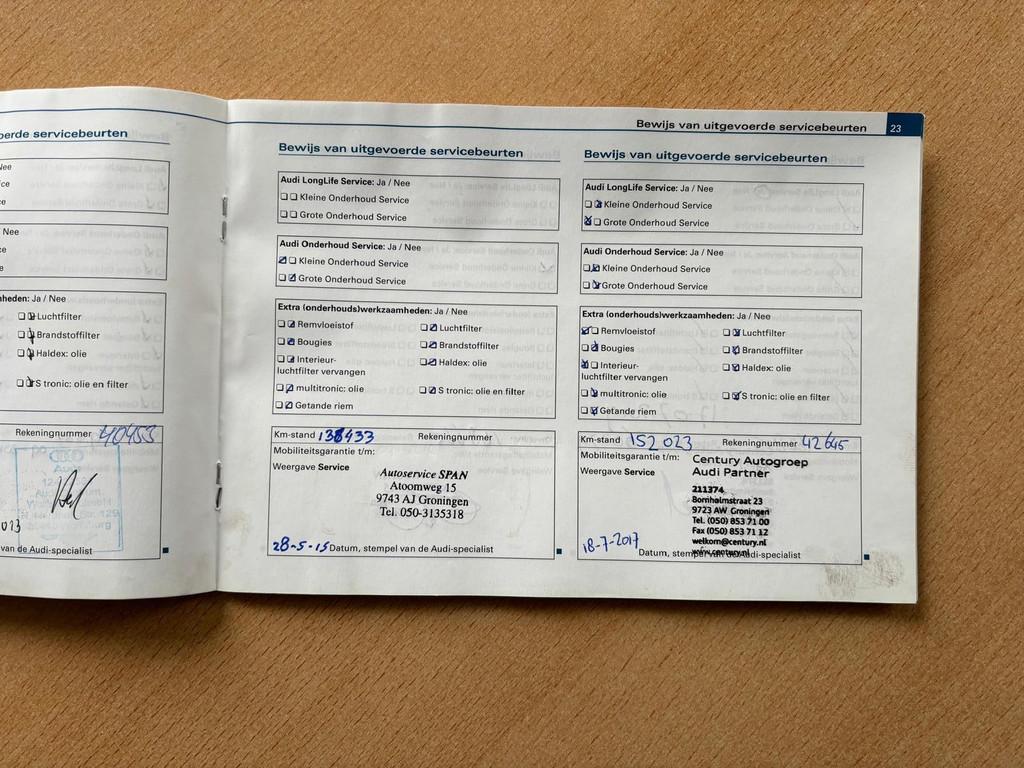 Bewijs van uitgevoerde servicebeurten 23
oerde servicebeurten
Nee
Nee
heden: Ja / Nee
Luchtfilter
Brandstoffilter
Haldex: olie
S tronic: olie en filter
Rekeningnummer 40453
van de Audi-specialist
Bewijs van uitgevoerde servicebeurten
Audi LongLife Service: Ja / Nee
Kleine Onderhoud Service
Grote Onderhoud Service
Audi Onderhoud Service: Ja / Nee
Kleine Onderhoud Service
Grote Onderhoud Service
Extra (onderhouds)werkzaamheden: Ja / Nee
Remvloeistof Luchtfilter
Bougies Brandstoffilter
Interieur- Haldex: olie
luchtfilter vervangen
multitronic: olie S tronic: olie en filter
Getande riem
Km-stand 138433 Rekeningnummer
Mobiliteitsgarantie t/m:
Weergave Service
Autoservice SPAN
Atoomweg 15
9743 AJ Groningen
Tel. 050-3135318
28-5-15 Datum, stempel van de Audi-specialist
Bewijs van uitgevoerde servicebeurten
Audi LongLife Service: Ja / Nee
Kleine Onderhoud Service
Grote Onderhoud Service
Audi Onderhoud Service: Ja / Nee
Kleine Onderhoud Service
Grote Onderhoud Service
Extra (onderhouds)werkzaamheden: Ja / Nee
Remvloeistof Luchtfilter
Bougies Brandstoffilter
Interieur- Haldex: olie
luchtfilter vervangen
multitronic: olie S tronic: olie en filter
Getande riem
Km-stand 152 023 Rekeningnummer 42645
Mobiliteitsgarantie t/m:
Weergave Service
Century Autogroep
Audi Partner
211374
Bornholmstraat 23
9723 AW Groningen
Tel. (050) 853 71 00
Fax (050) 853 71 12
welkom@century.nl
www.century.nl
18-7-2017 Datum, stempel van de Audi-specialist